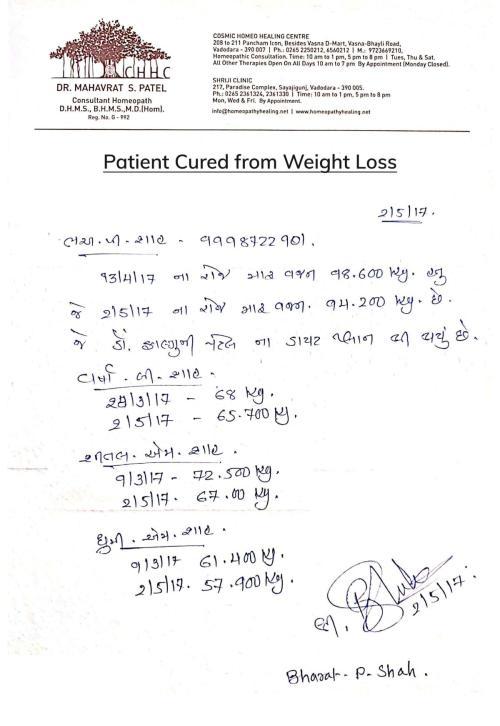 CHHC
DR. MAHAVRAT S. PATEL
Consultant Homeopath
D.H.M.S., B.H.M.S.,M.D.(Hom).
Reg. No. G - 992
COSMIC HOMEO HEALING CENTRE
208 to 211 Pancham Icon, Besides Vasna D-Mart, Vasna-Bhayli Road,
Vadodara - 390 007 | Ph.: 0265 2250212, 6560212 | M.: 9723669210,
Homeopathic Consultation. Time: 10 am to 1 pm, 5 pm to 8 pm | Tues, Thu & Sat.
All Other Therapies Open On All Days 10 am to 7 pm By Appointment (Monday Closed).
SHRIJI CLINIC
217, Paradise Complex, Sayajigunj, Vadodara - 390 005.
Ph.: 0265 2361324, 2361330 | Time: 10 am to 1 pm, 5 pm to 8 pm
Mon, Wed & Fri. By Appointment.
info@homeopathyhealing.net | www.homeopathyhealing.net
Patient Cured from Weight Loss
૨/5/17.
પી. શાહ - ૧૧૧8722૧01.
13/4/17 ના રોજ મારૂ વજન ૧8.600 kg. હતુ
જે ૨/5/17 ના રોજ મારૂ વજન. ૧4.200 kg. છે.
જે ડૉ. ફાલ્ગુની પટેલ ના ડાયટ પ્લાન થી થયું છે.
વર્ષા. બી. શાહ.
3/17 - 68 kg.
૨/5/17 - 65.700 kg.
શીતલ. એમ. શાહ.
૧/3/17 - 72.500 kg.
૨/5/17. 67.00 kg.
ધ્રુમી. એમ. શાહ.
૧/3/17 61.400 kg.
૨/5/17. 57.900 kg.
૨/5/17.
Bharat-P-Shah.